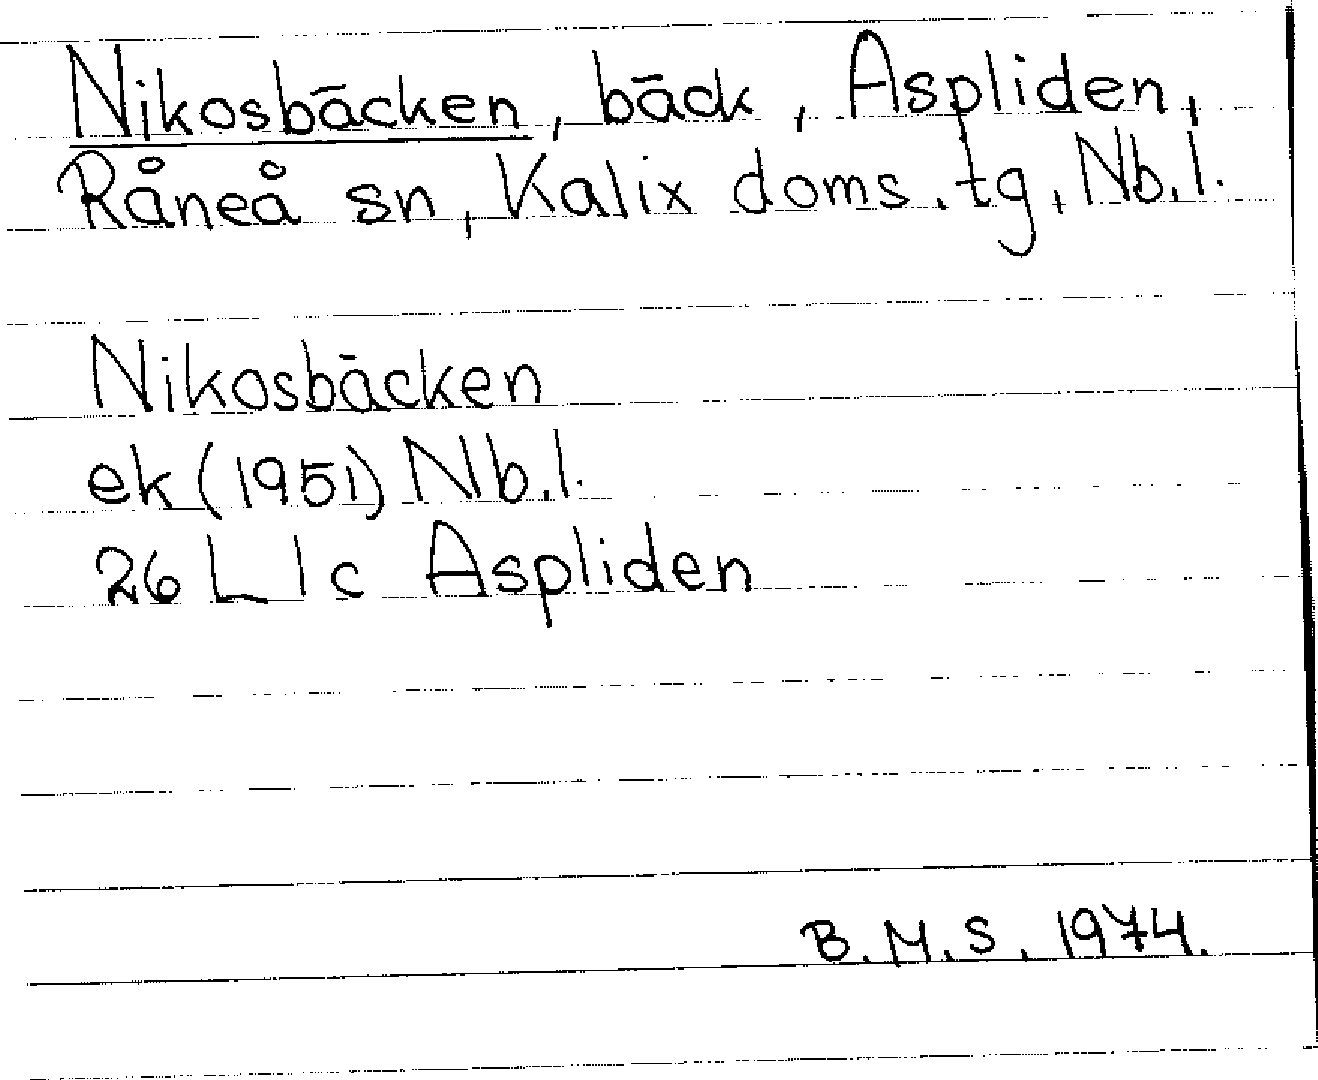 Nikosbäcken, bäck, Aspliden,
Råneå sn, Kalix doms. tg, Nb. l.
Nikosbäcken
ek (1951) Nb. l.
26 L I c Aspliden
B. M. S. 1974.